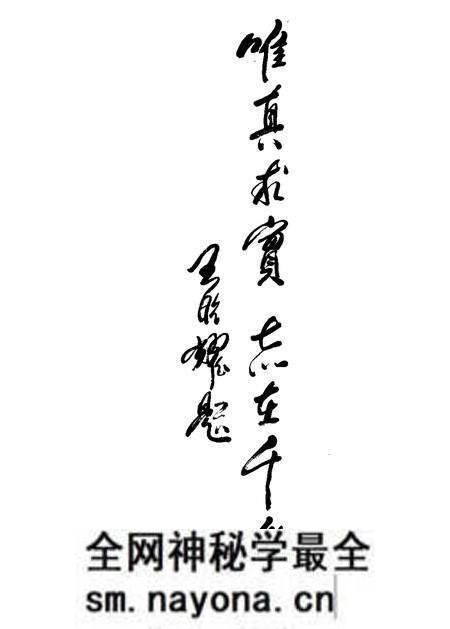 唯真求實志在千
王照耀题
全网神秘学最全
sm.nayona.cn